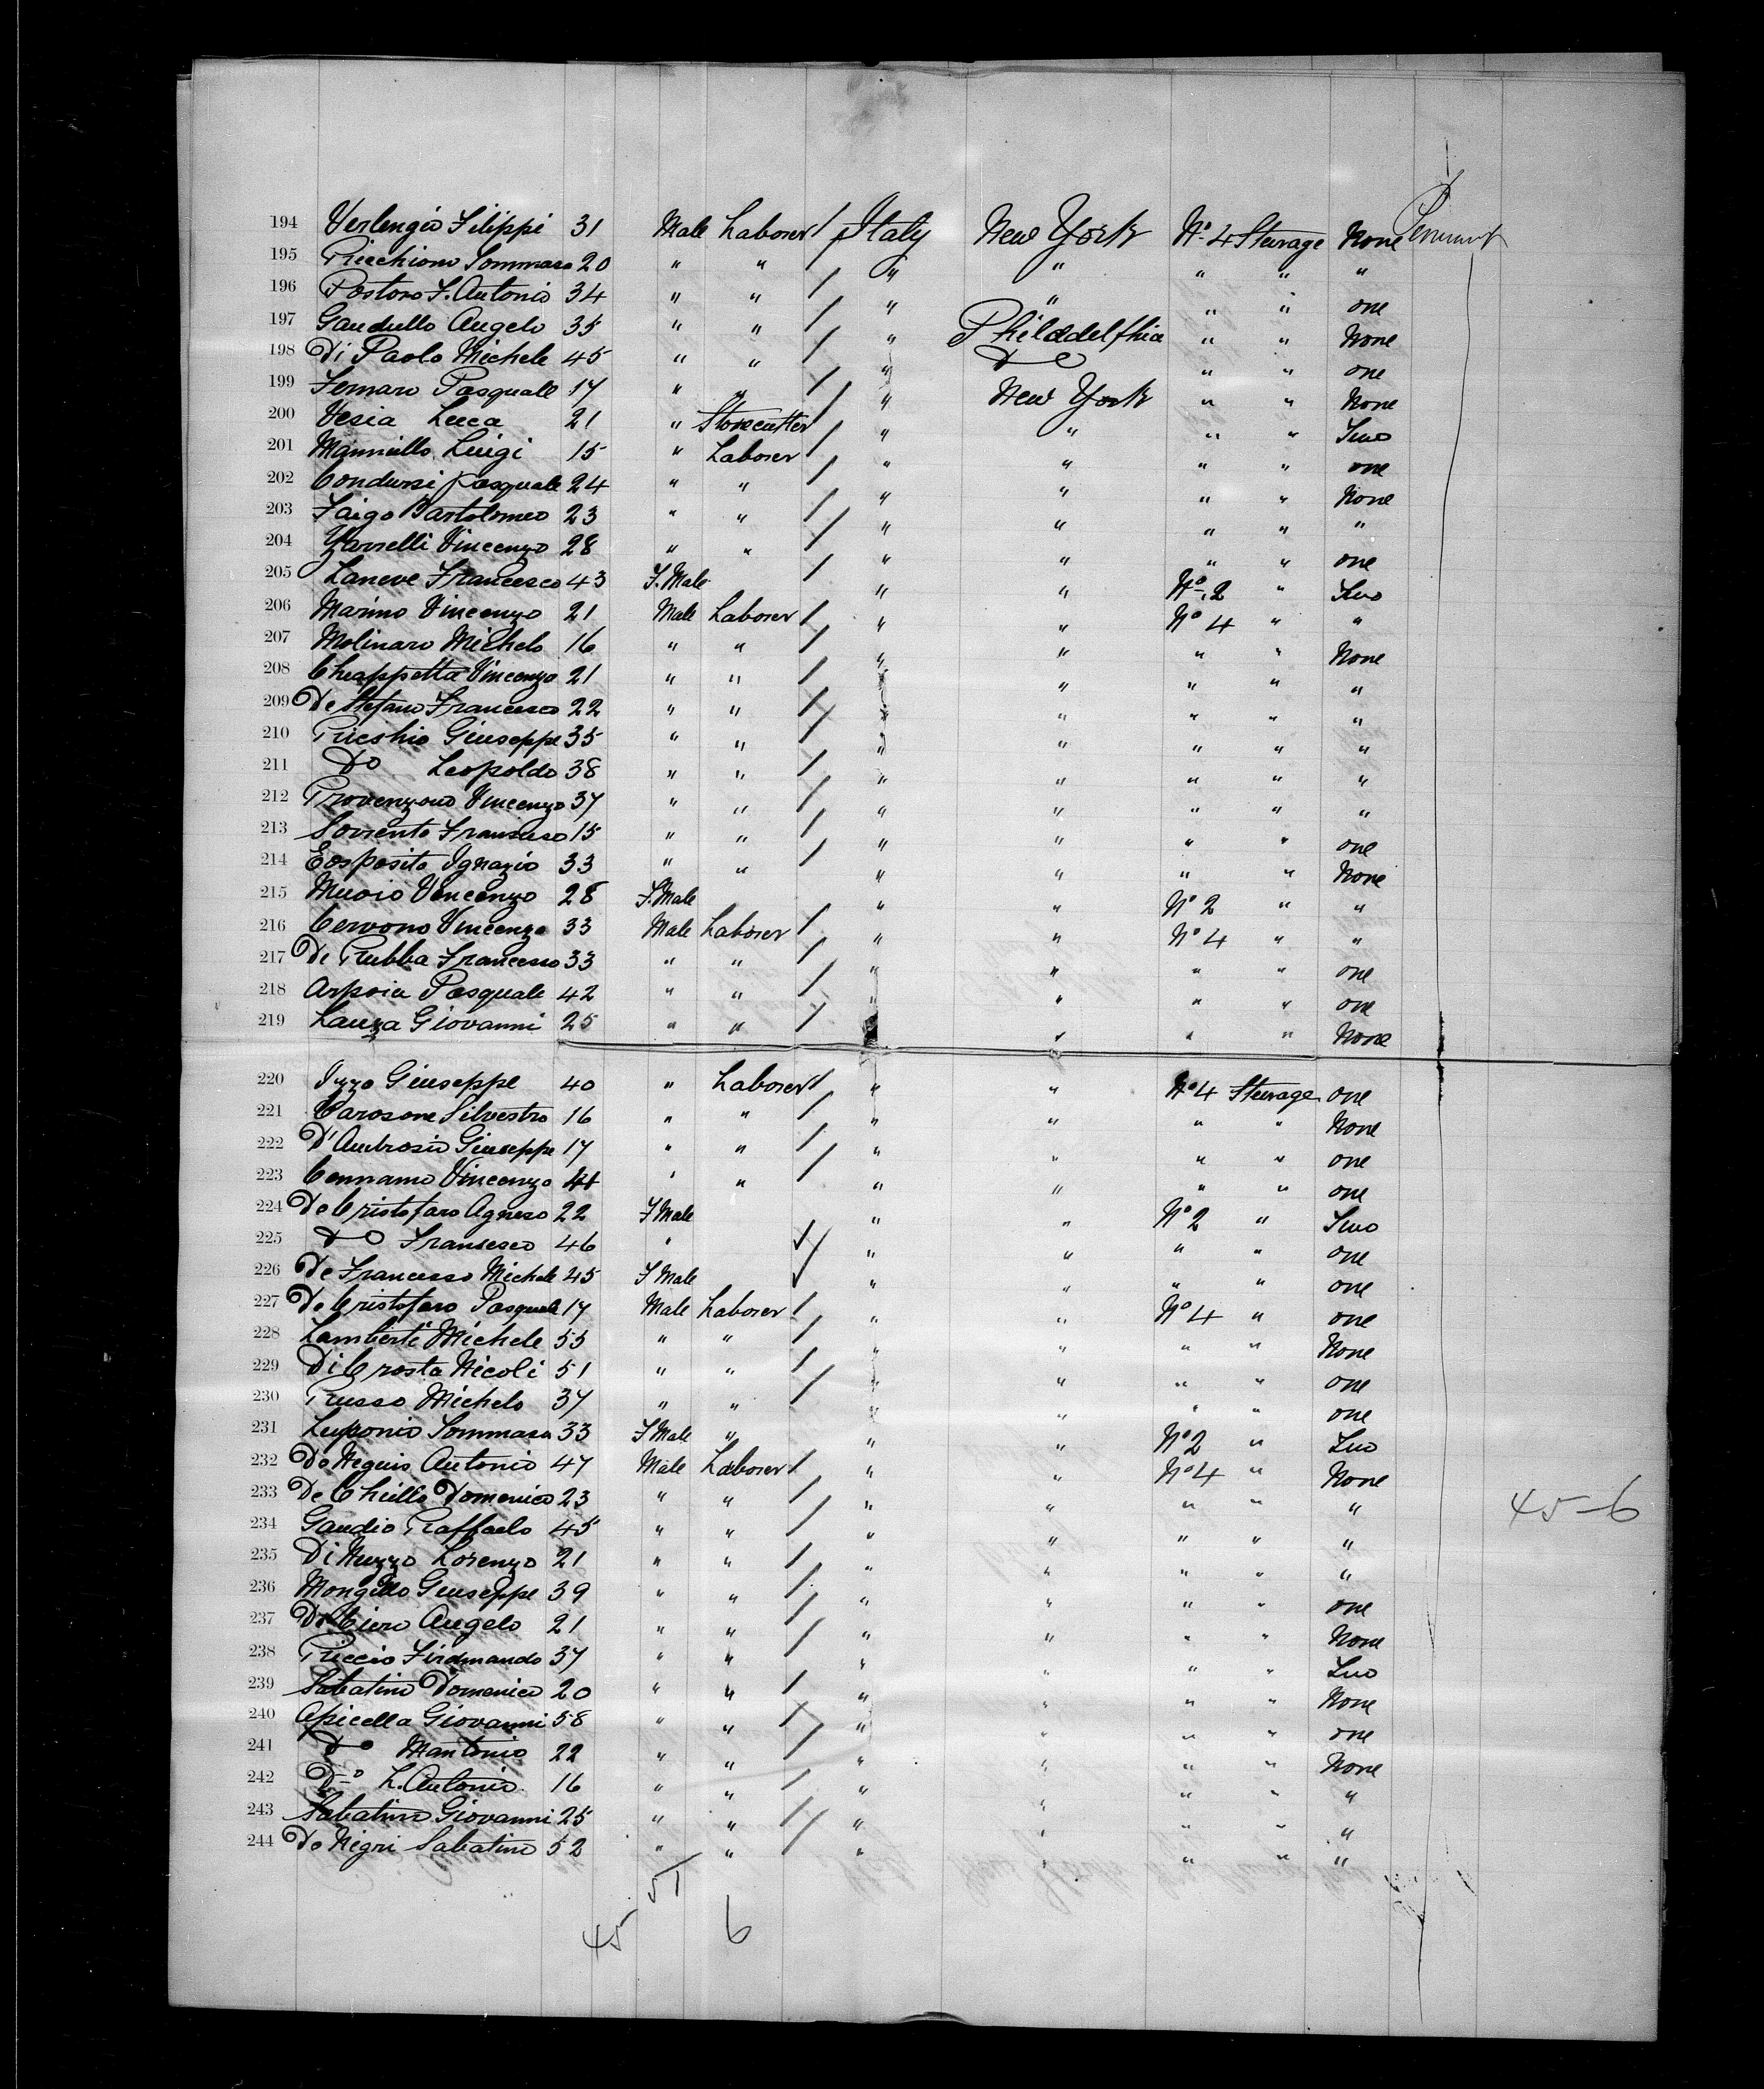 194 Verlengia Filippi 31 Male Laborer / Italy New York No. 4 Steerage None
195 Ricchioni Tommaso 20 " " / " " " " "
196 Pastoro F. Antonio 34 " " / " " " " one
197 Gaudullo Angelo 35 " " / " Philadelfhia " " None
198 Di Paolo Michele 45 " " / " Do " " one
199 Pasquale 17 " " / " New York " " None
200 Vesia Luca 21 " Stonecutter / " " " " Two
201 Manniello Luigi 15 " Laborer / " " " " one
202 Condursi Pasquale 24 " " / " " " " None
203 Faigo Bartolomeo 23 " " / " " " " "
204 Yarrelli Vincenzo 28 " " / " " " " one
205 Laneve Francesco 43 F. Male " " No. 2 " Two
206 Marino Vincenzo 21 Male Laborer / " " No 4 " "
207 Molinaro Michele 16 " " / " " " " None
208 Chiappetta Vincenzo 21 " " / " " " " "
209 De Stefano Francesco 22 " " / " " " " "
210 Giuseppe 35 " " / " " " " "
211 Do Leopoldo 38 " " / " " " " "
212 Provenzono Vincenzo 37 " " / " " " " "
213 Sorrento Francesco 15 " " / " " " " one
214 Eosposito Ignazio 33 " " / " " " " None
215 Muoio Vincenzo 28 F. Male " " No 2 " "
216 Cervono Vincenzo 33 Male Laborer / " " No 4 " "
217 De Rubba Francesco 33 " " / " " " " one
218 Arpoia Pasquale 42 " " / " " " " one
219 Lauza Giovanni 25 " " / " " " None
220 Izzo Giuseppe 40 " Laborer / " " No 4 Steerage one
221 Carosone Silvestro 16 " " / " " " " None
222 D'Ambrosio Giuseppe 17 " " / " " " " one
223 Cennamo Vincenzo 44 " " / " " " " one
224 De Cristofaro Agnese 22 F Male " " No 2 " Two
225 Do Francesco 46 " " " " " one
226 De Francesso Michele 45 F Male " " " " one
227 De Cristofaro Pasquale 17 Male Laborer / " " No 4 " one
228 Lamberti Michele 55 " " / " " " " None
229 Di Crosta Nicoli 51 " " / " " " " one
230 Russo Michele 37 " " / " " " " one
231 Luponio Tommasa 33 F Male " " " No 2 " Two
232 De Neguis Antonio 47 Male Laborer / " " No 4 " None
233 De Chiello Domenico 23 " " / " " " " "
45-6
234 Gaudio Raffaelo 45 " " / " " " " "
235 Di Nuzzo Lorenzo 21 " " / " " " " "
236 Mongillo Giuseppe 39 " " / " " " " one
237 Angelo 21 " " / " " " " None
238 Riccio Firdinando 37 " " / " " " " Two
239 Sabatino Domenico 20 " " / " " " " None
240 Apicella Giovanni 58 " " / " " " " one
241 Do Mantonio 22 " " / " " " " None
242 Do L. Antonio 16 " " / " " " " "
243 Sabatino Giovanni 25 " " / " " " " "
244 De Nigri Sabatino 52 " " / " " " " "
51
45 6